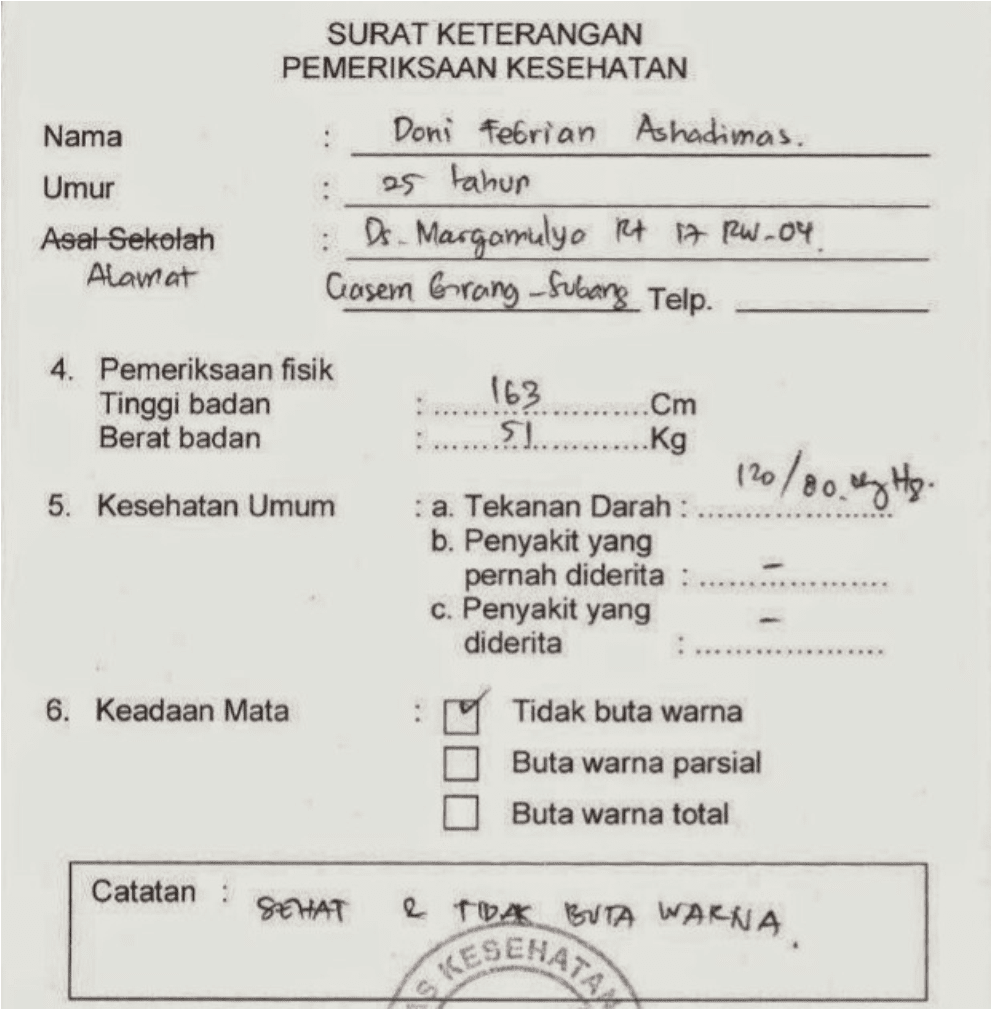 SURAT KETERANGAN
PEMERIKSAAN KESEHATAN
Nama : Doni Febrian Ashadimas.
Umur : 25 tahun
Asal Sekolah : Ds. Margamulyo Rt 17 RW-04.
Alamat
Telp.
4. Pemeriksaan fisik
Tinggi badan : 163 Cm
Berat badan : 51 Kg
5. Kesehatan Umum : a. Tekanan Darah : 120/80 Hg.
b. Penyakit yang
pernah diderita : -
c. Penyakit yang
diderita : -
6. Keadaan Mata : Tidak buta warna
Buta warna parsial
Buta warna total
Catatan : SEHAT & TIDAK BUTA WARNA.
KESEHATAN